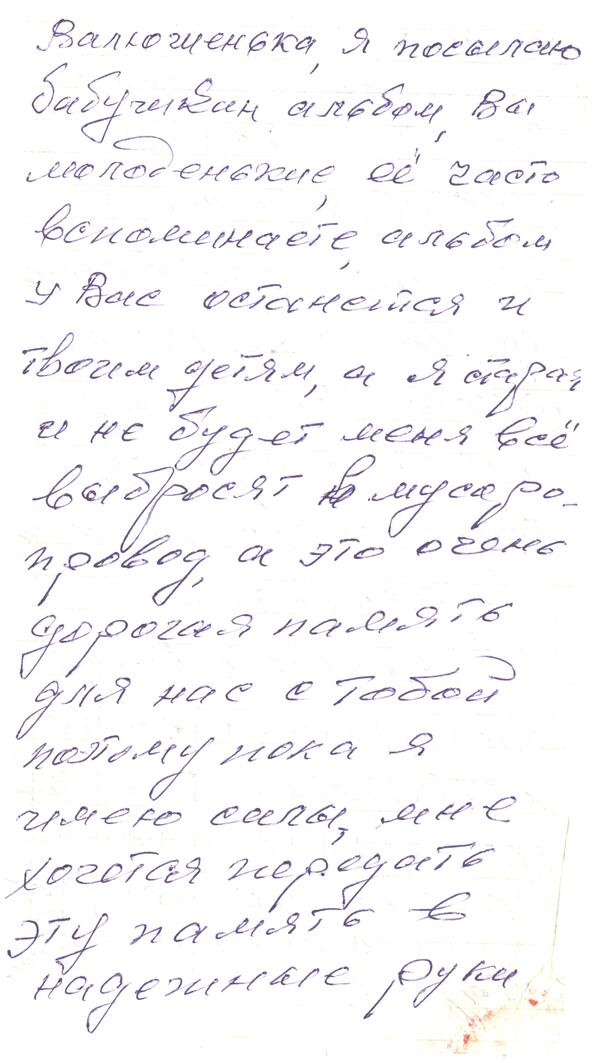 Валюшенька, я посылаю
бабушкин альбом, Вы
молоденькие, её часто
вспоминаете, альбом
у Вас останется и
твоим детям, а я старая
и не будет меня всё
выбросят в мусоро-
провод, а это очень
дорогая память
для нас с тобой
поэтому пока я
имею силы, мне
хочется передать
эту память в
надежные руки